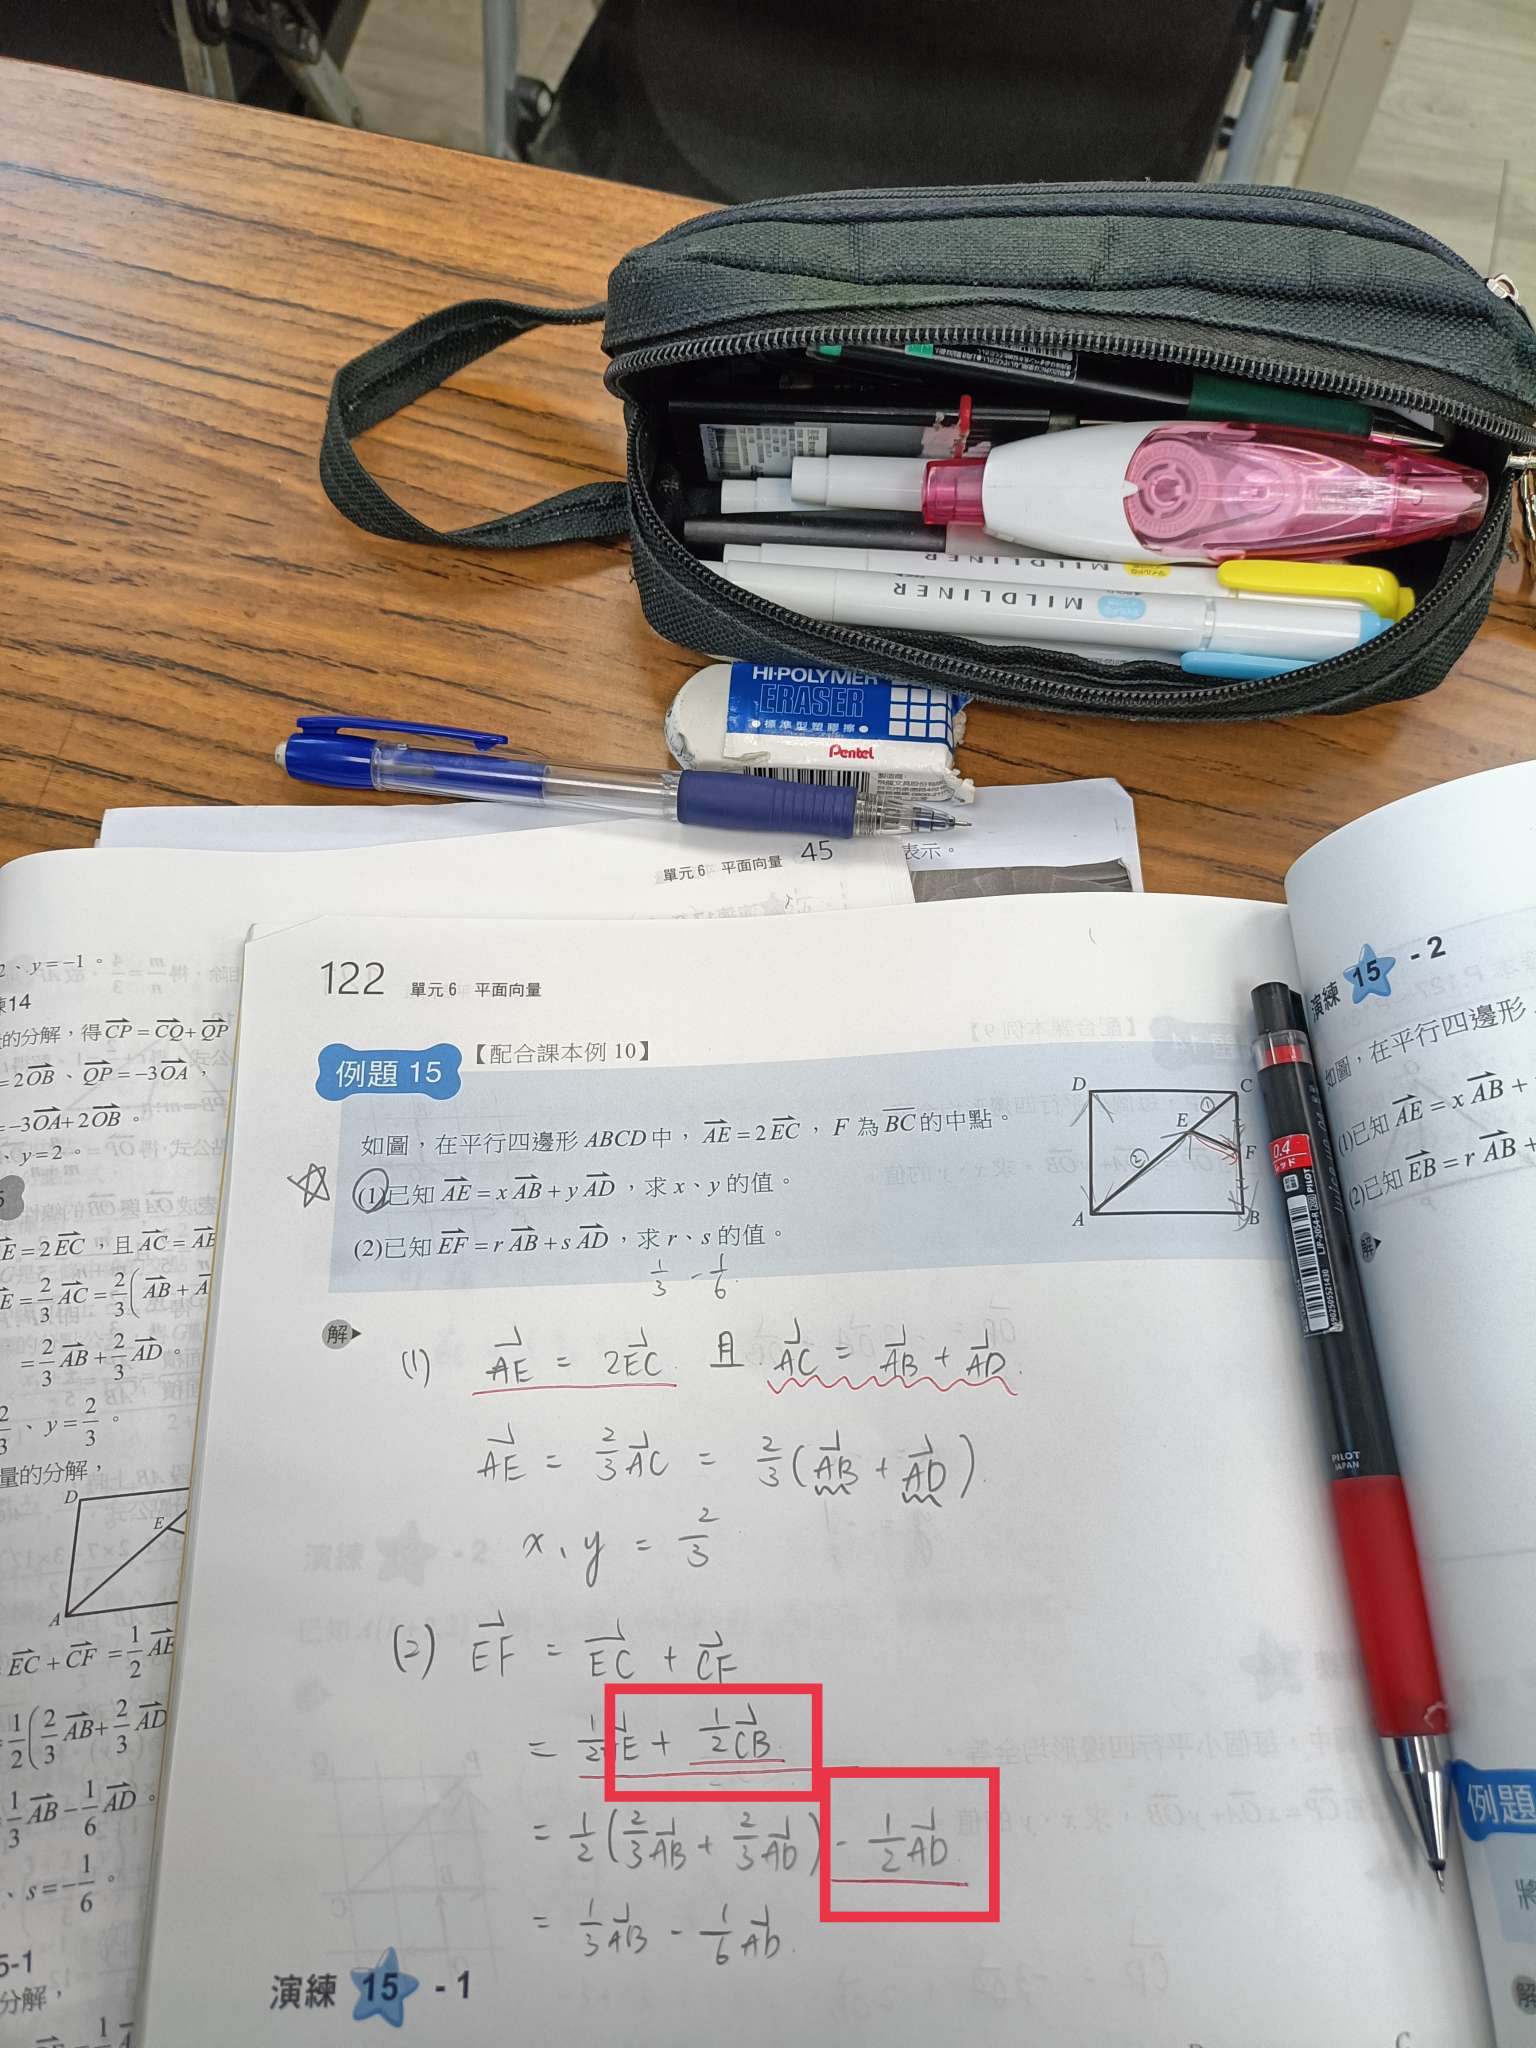 MILDLINER
MILDLINER
HI-POLYMER
ERASER
標準型塑膠擦
Pentel
表示。
單元6 平面向量 45
2、y=-1。
練14
的分解，得CP=CQ+QP
=2OB、QP=-3OA，
=-3OA+2OB。
、y=2。
E=2EC，且AC=AB
E=2/3AC=2/3(AB+A
=2/3AB+2/3AD。
2/3、y=2/3。
量的分解，
D
E
A
EC+CF=1/2AE
1/2(2/3AB+2/3AD
1/3AB-1/6AD。
、s=-1/6。
5-1
分解，
122 單元6 平面向量
例題 15 【配合課本例 10】
如圖，在平行四邊形ABCD中，AE=2EC，F為BC的中點。
(1)已知AE=xAB+yAD，求x、y的值。
(2)已知EF=rAB+sAD，求r、s的值。
1/3 -1/6
D C
① E
② F
A B
解
(1) AE = 2EC 且 AC = AB + AD
AE = 2/3AC = 2/3(AB + AD)
x、y = 2/3
(2) EF = EC + CF
= 1/2AE + 1/2CB
= 1/2(2/3AB + 2/3AD) - 1/2AD
= 1/3AB - 1/6AD
演練 15 - 1
C
演練 15 - 2
如圖，在平行四邊形
(1)已知AE=xAB+
(2)已知EB=rAB+
解
例題
將
解
0.4
PILOT
LJP-20S4-R
4902505521430
PILOT
JAPAN